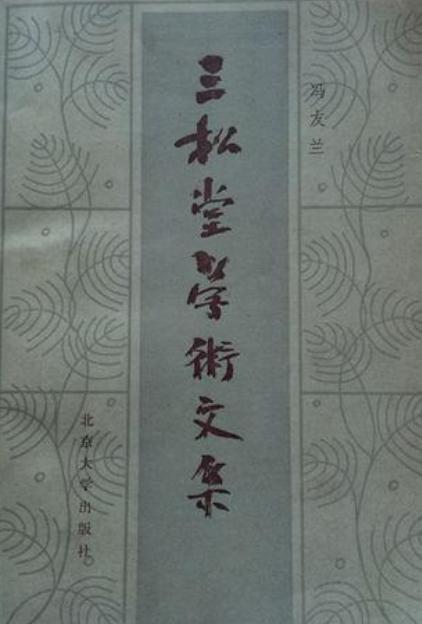 冯友兰
三松堂学術文集
北京大学出版社